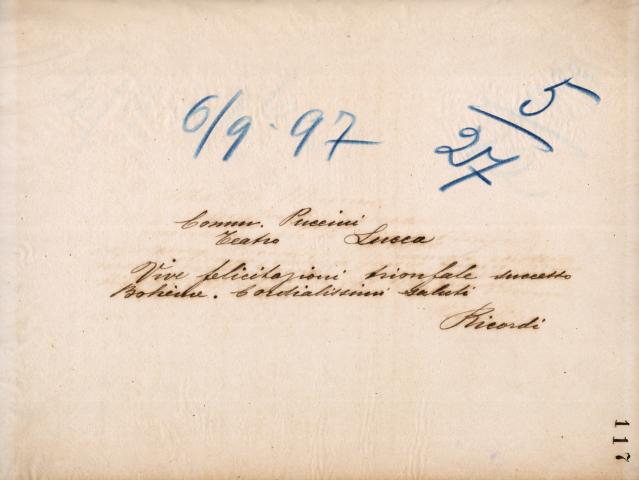 6/9.97
5/27
Comm. Puccini
Teatro Lucca
Vive felicitazioni trionfale successo
Bohème. Cordialissimi saluti
Ricordi
117